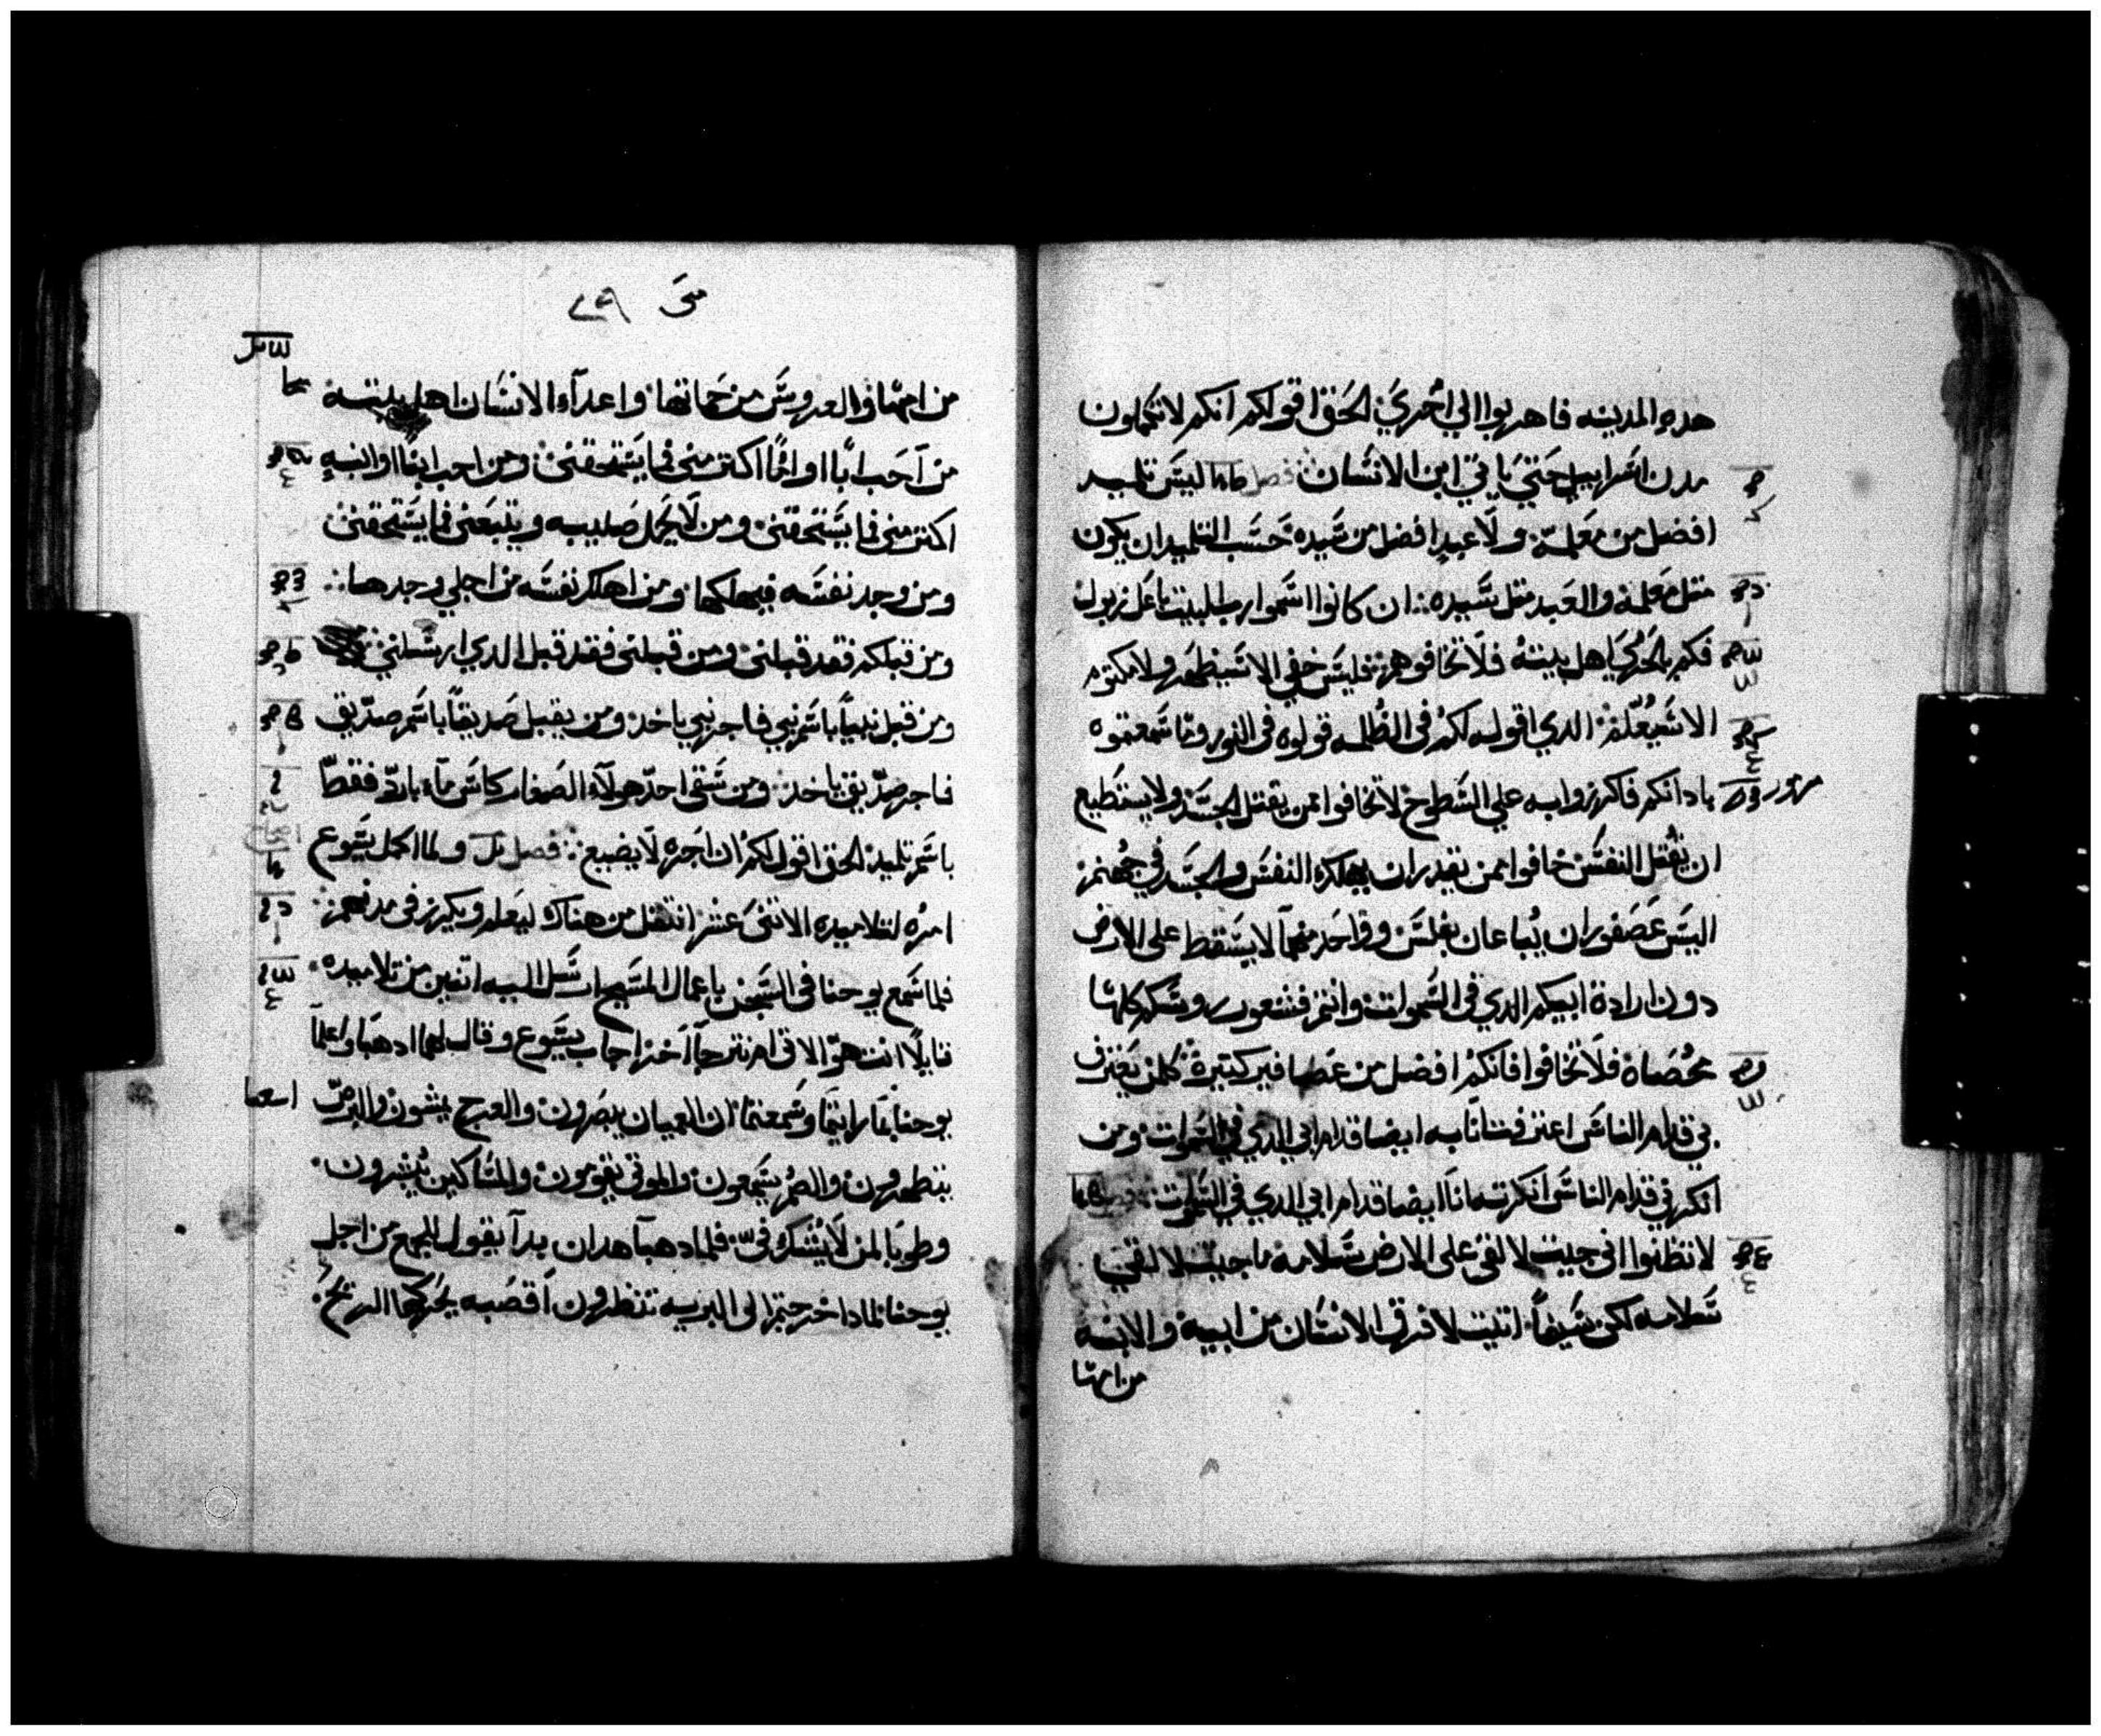 هده المدينه فاهربوا الي اخري الحق اقول لكم انكم لا تكملون
مدن اسراييل حتي ياتي ابن الانسان فصل ليس تلميد
افضل من معلمه ولا عبد افضل من سيده حسب التلميد ان يكون
متل معلمه والعبد متل سيده ان كانوا اسموا رب البيت باعل زبول
فكم بالحري اهل بيته فلا تخافوهم فليس خفي الا سيظهر ولا مكتوم
الا سيعلن الدي اقوله لكم في الظلمه قولوه في النور وما سمعتموه
بادانكم فاكرزوا به علي السطوح لا تخافوا ممن يقتل الجسد ولا يستطيع
ان يقتل النفس خافوا ممن يقدر ان يهلك النفس والجسد في جهنم
اليس عصفوران يباعان بفلس وواحد منهما لا يسقط علي الارض
دون ارادة ابيكم الدي في السموات وانتم فشعور روسكم كلها
محصاة فلا تخافوا فانكم افضل من عصافير كتيرة كلمن يعترف
بي قدام الناس اعترف انا به ايضا قدام ابي الدي في السموات ومن
انكرني قدام الناس انكرته انا ايضا قدام ابي الدي في السموات
لا تظنوا اني جيت لالقي علي الارض سلامه ما جيت لالقي
سلامه لكن سيفا اتيت لافرق الانسان من ابيه والابنه
من امها
متي
من امها والعروس من حماتها واعداء الانسان اهل بيته
من احب ابا او اما اكتر مني فما يستحقني ومن احب ابنا او ابنه
اكتر مني فما يستحقني ومن لا يحمل صليبه ويتبعني فما يستحقني
ومن وجد نفسه فيهلكها ومن اهلك نفسه من اجلي وجدها
ومن قبلكم فقد قبلني ومن قبلني فقد قبل الدي ارسلني
ومن قبل نبيا باسم نبي فاجر نبي ياخد ومن يقبل صديقا باسم صديق
فاجر صديق ياخد ومن سقى احد هولاء الصغار كاس ماء بارد فقط
باسم تلميد الحق اقول لكم ان اجره لا يضيع فصل ولما اكمل يسوع
امره لتلاميده الاتني عشر انتقل من هناك ليعلم ويكرز في مدنهم
فلما سمع يوحنا في السجن باعمال المسيح ارسل اليه اتنين من تلاميده
قايلا انت هو الاتي ام نترجا اخر اجاب يسوع وقال لهما ادهبا واعلما
يوحنا بما رايتما وسمعتما ان العميان يبصرون والعرج يمشون والبرص
يتطهرون والصم يسمعون والموتي يقومون والمساكين يبشرون
وطوبا لمن لا يشك في فلما دهبا هدان بدا يقول للجمع من اجل
يوحنا لمادا خرجتم الى البريه تنظرون اقصبه يحركها الريح